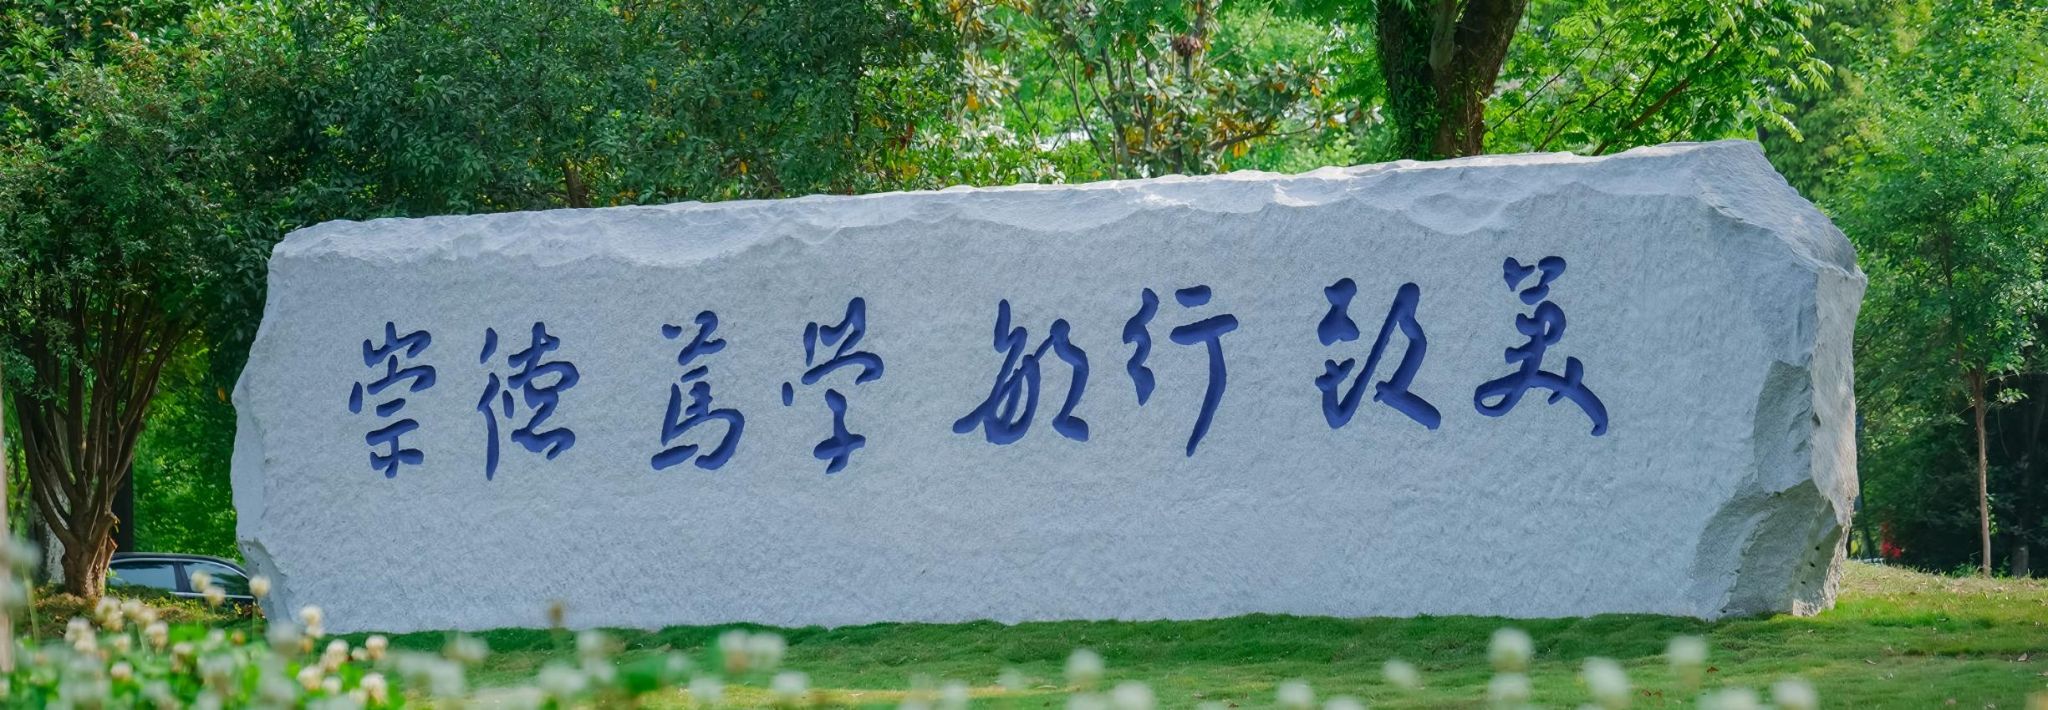 崇德 篤学 敏行 致美